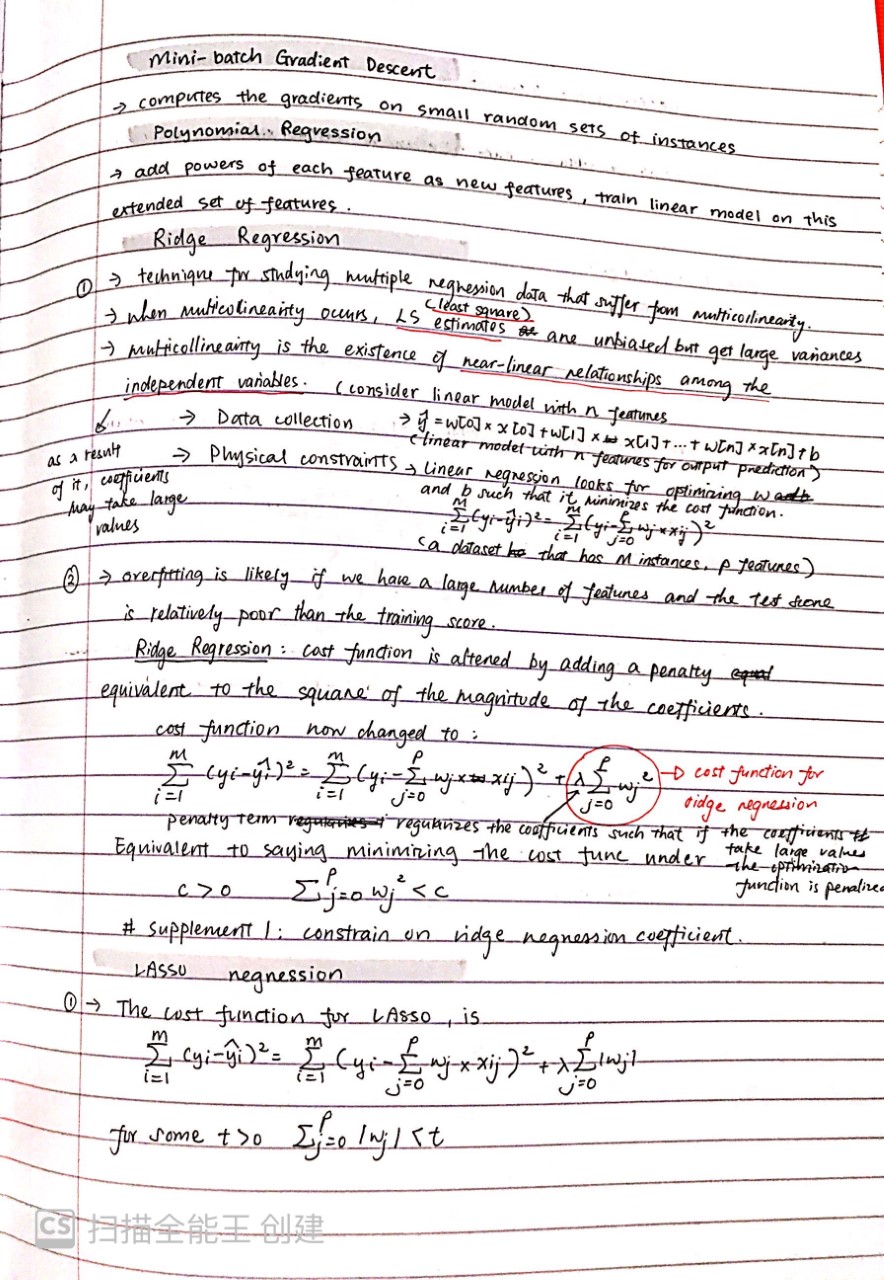 Mini-batch Gradient Descent
→ computes the gradients on small random sets of instances
Polynomial Regression
→ add powers of each feature as new features, train linear model on this
extended set of features.
Ridge Regression
① → technique for studying multiple regression data that suffer from multicollinearity.
(least square)
→ when multicolinearity occurs, LS estimates are unbiased but get large variances
→ multicollinearity is the existence of near-linear relationships among the
independent variables. (consider linear model with n features
→ Data collection → ŷ = w[0] × x[0] + w[1] × x[1] + ... + w[n] × x[n] + b
(linear model with n features for output prediction)
as a result of it, coefficients may take large values
→ Physical constraints → Linear regression looks for optimizing w
and b such that it minimizes the cost function.
M∑i=1 (yi-ŷi)² = M∑i=1 (yi - p∑j=0 wj × xij)²
(a dataset that has M instances, p features)
② → overfitting is likely if we have a large number of features and the test score
is relatively poor than the training score.
Ridge Regression : cost function is altered by adding a penalty
equivalent to the square of the magnitude of the coefficients.
cost function now changed to :
M∑i=1 (yi-ŷi)² = M∑i=1 (yi - p∑j=0 wj × xij)² + λ p∑j=0 wj² → cost function for
ridge regression
penalty term regularizes the coefficients such that if the coefficients
take large values
the optimization
function is penalized
Equivalent to saying minimizing the cost func under
c>0 ∑pj=0 wj² < c
# Supplement 1: constrain on ridge regression coefficient.
LASSO regression
① → The cost function for LASSO, is
M∑i=1 (yi-ŷi)² = M∑i=1 (yi - p∑j=0 wj × xij)² + λ p∑j=0 |wj|
for some t>0 ∑pj=0 |wj| < t
CS 扫描全能王 创建